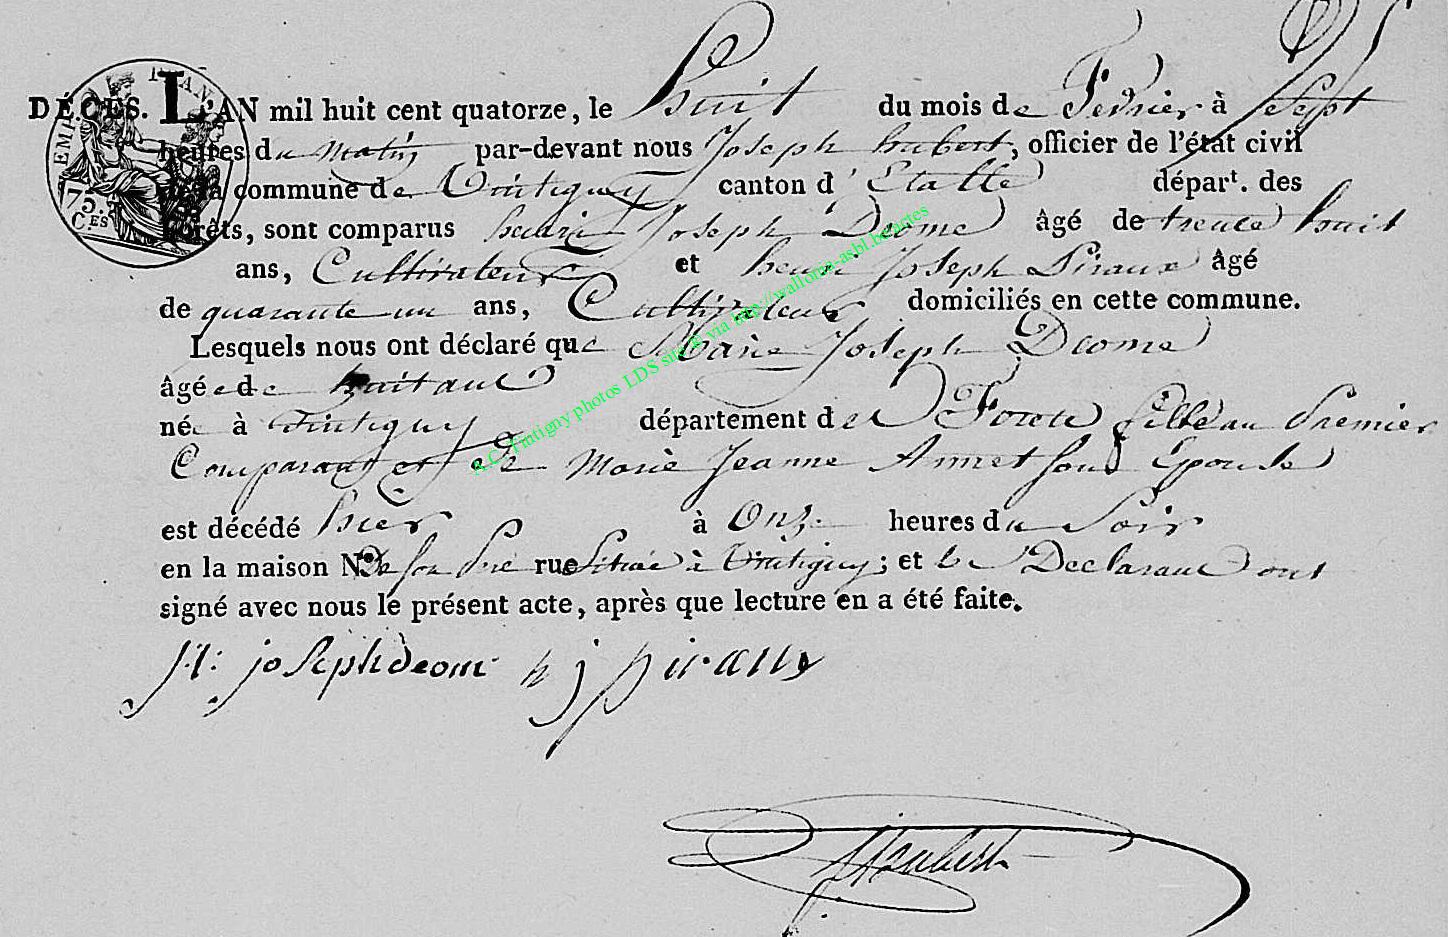 DÉCES. L'AN mil huit cent quatorze, le huit du mois de Fevrier à Sept
heures du matin par-devant nous Joseph hubert, officier de l'état civil
de la commune de Tintigny canton d' Etalle départ. des
Forêts, sont comparus henri Joseph Deome âgé de trente huit
ans, Cultivateur et henri Joseph Piraux âgé
de quarante un ans, Cultivateur domiciliés en cette commune.
Lesquels nous ont déclaré que Marie Joseph Deome
âgée de huit ans
née à Tintigny département des Forets fille au Premier
Comparant et de Marie Jeanne Annet son Epouse
est décédé hier à Onze heures du Soir
en la maison No. de son Pere rue Située à Tintigny; et les Declarans ont
signé avec nous le présent acte, après que lecture en a été faite.
H: joseph deome h j piraux
JHubert
EMP FRAN
75.
C.ES
A.C. Tintigny photos LDS site via http://wallonia-asbl.be/actes